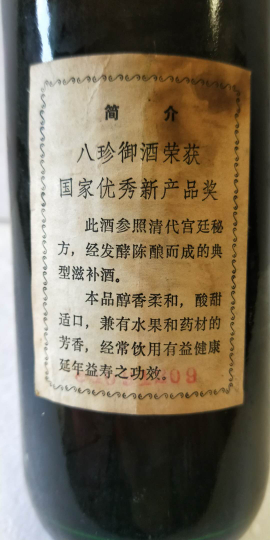 简 介
八珍御酒荣获
国家优秀新产品奖
此酒参照清代宫廷秘
方，经发酵陈酿而成的典
型滋补酒。
本品醇香柔和，酸甜
适口，兼有水果和药材的
芳香，经常饮用有益健康
延年益寿之功效。